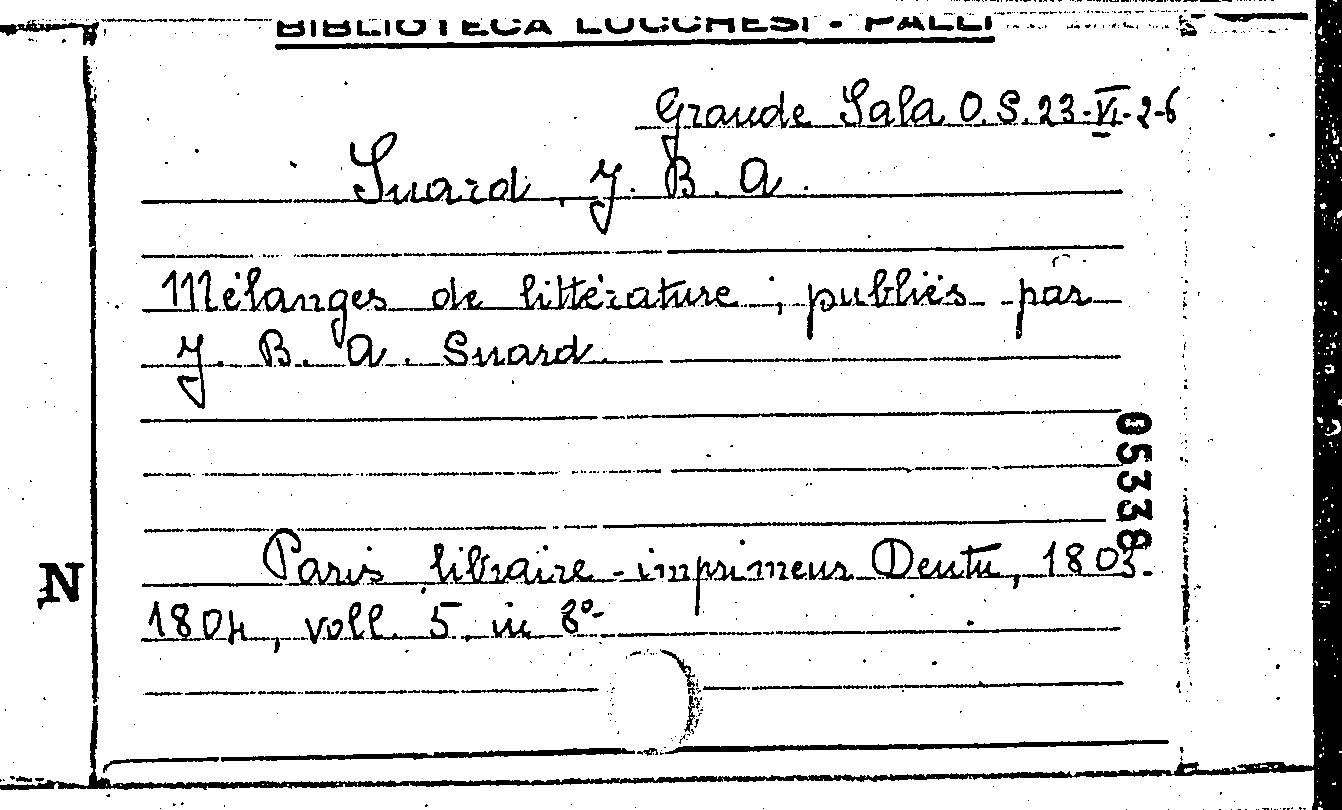 BIBLIOTECA LUCCHESI - PALLI
Grande Sala O. S. 23-VI-2-6
Suard, J. B. A.
Mélanges de littérature ; publiés par
J. B. A. Suard.
05338
Paris libraire - imprimeur Dentu, 1803-
1804, voll. 5 in 8º-
N